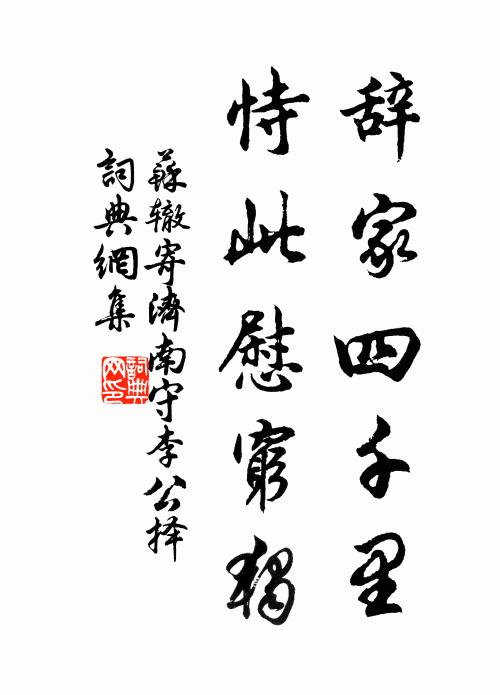 辞家四千里
恃此慰窮獨
蘇辙寄濟南守李公择
詞典網集
詞典网印